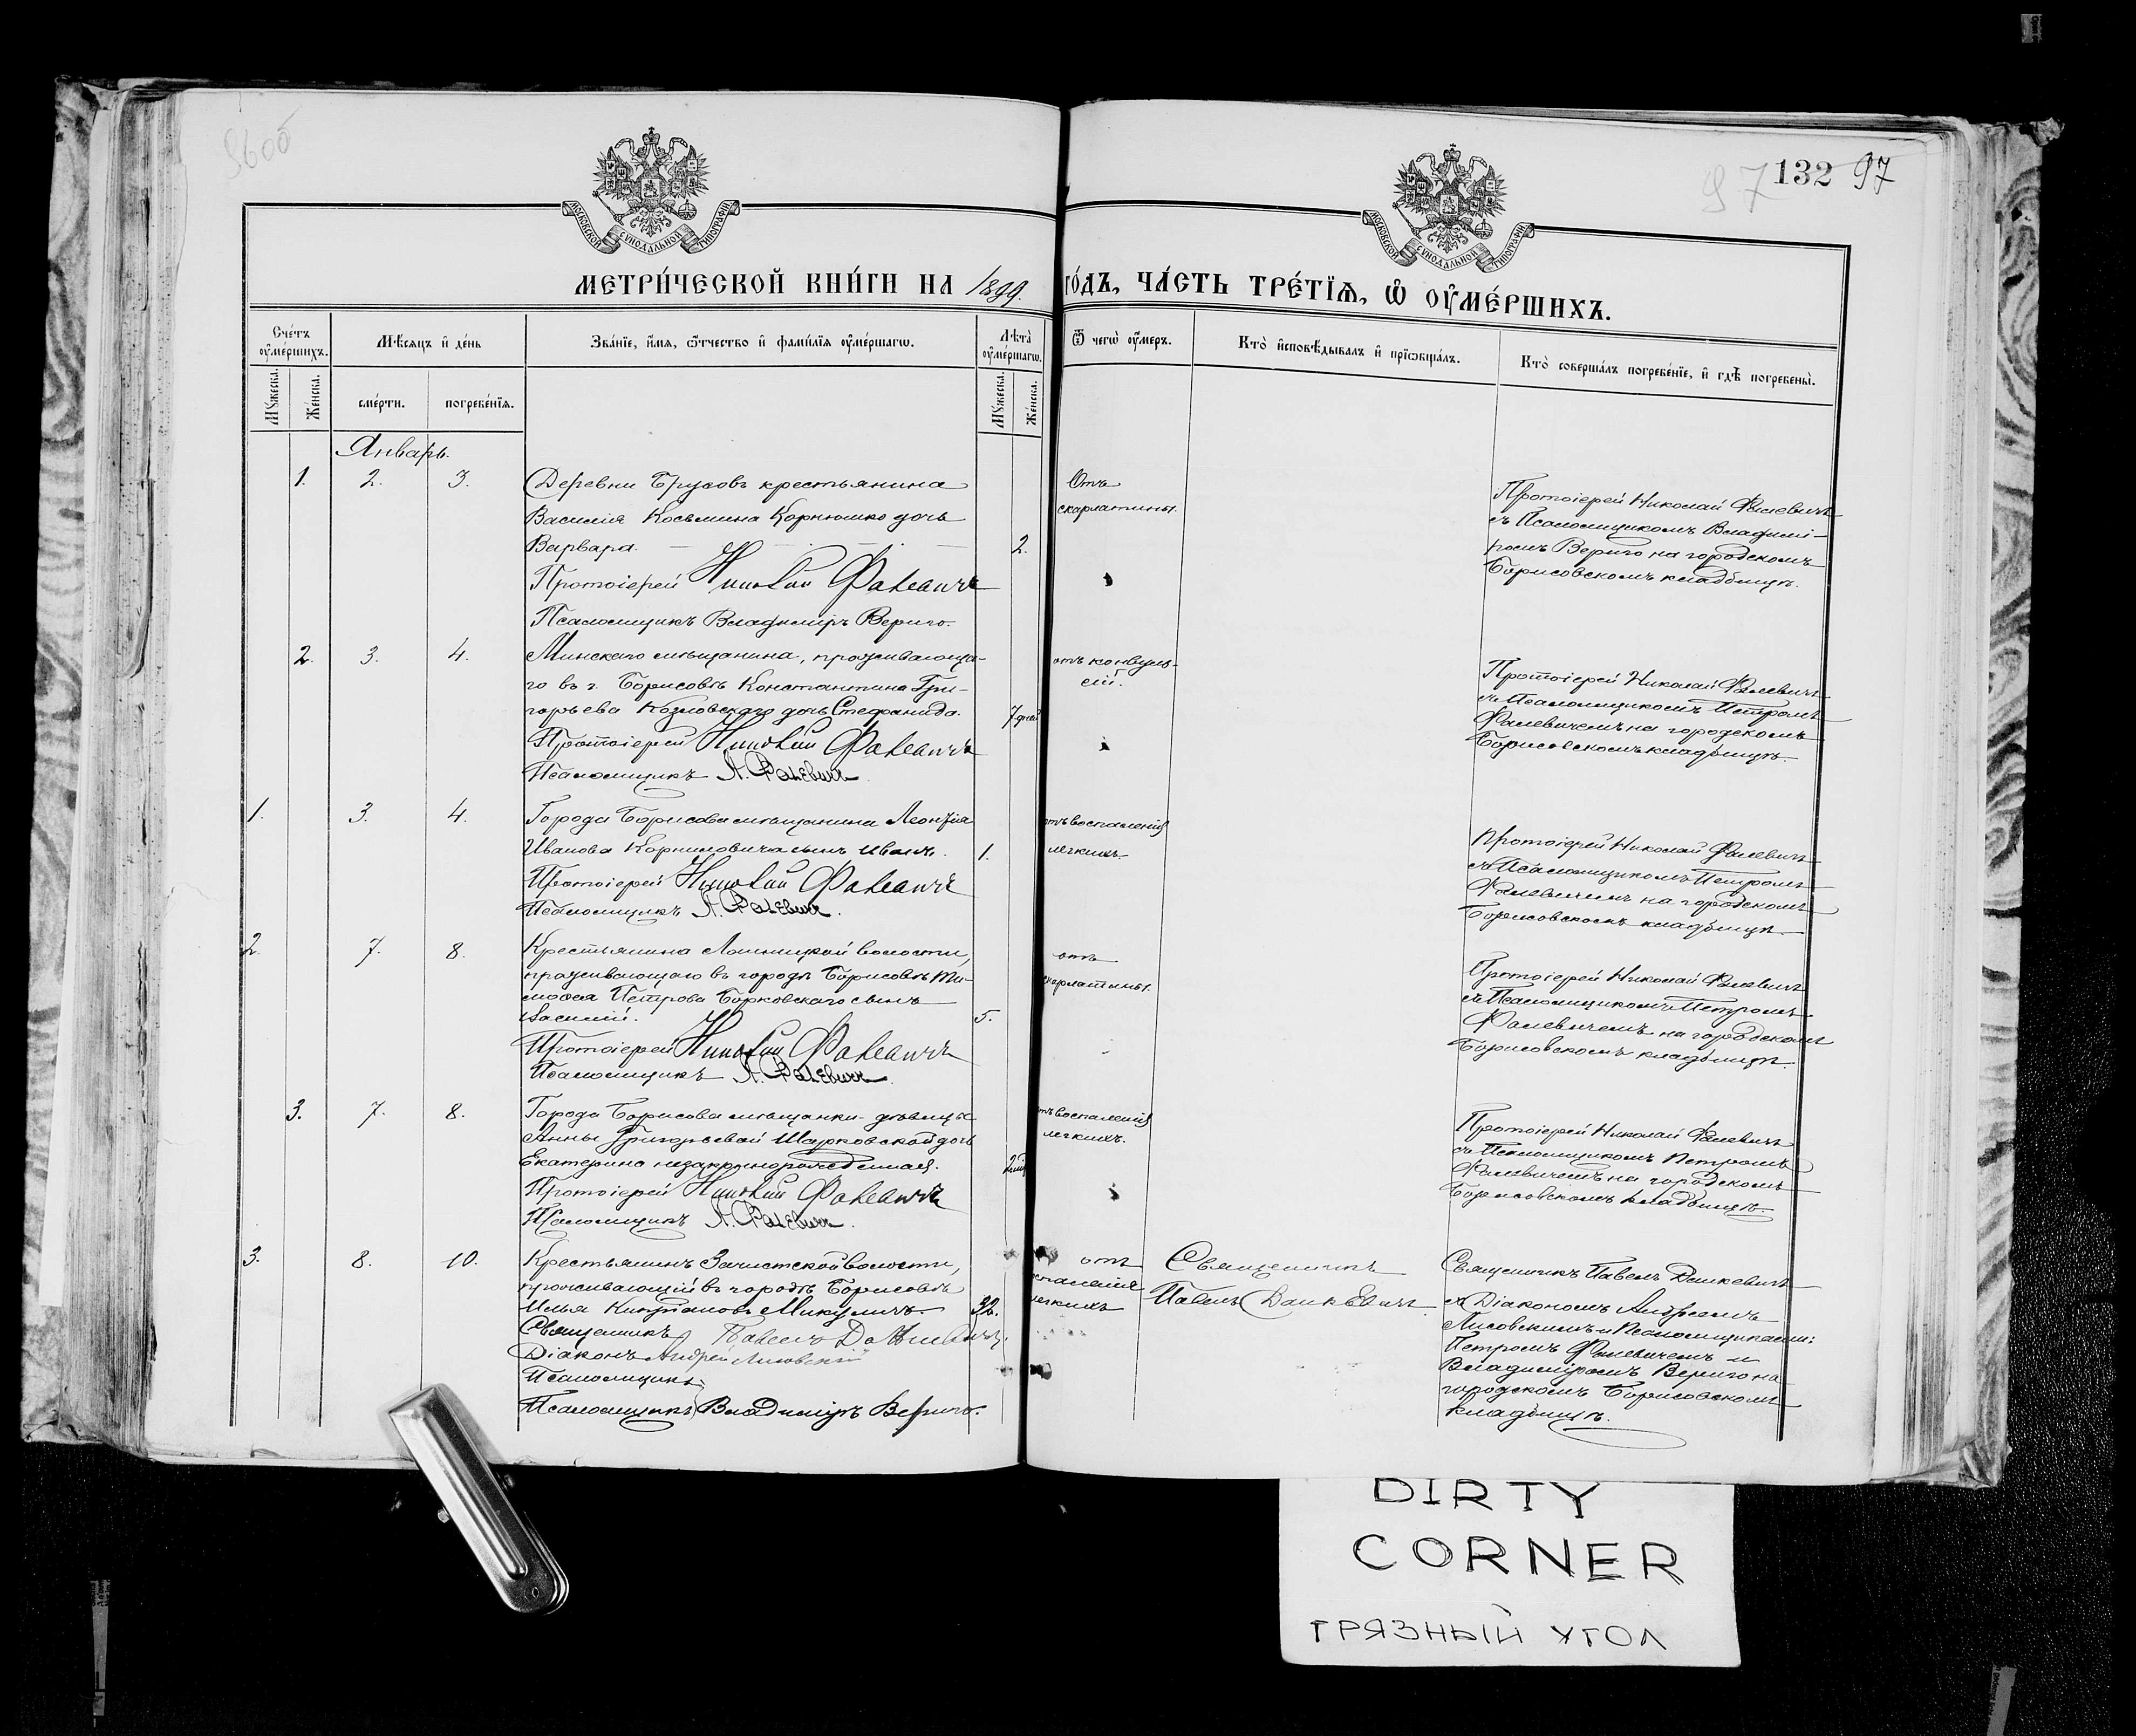 96об
97 132 97
МОСКОВСКОЙ СѴНОДАЛЬНОЙ ТИПОГРАФІИ
МОСКОВСКОЙ СѴНОДАЛЬНОЙ ТИПОГРАФІИ
МЕТРИ́ЧЕСКОЙ КНИ́ГИ НА 1899 ГО́ДЪ, ЧА́СТЬ ТРЕ́ТЇѦ, Ѡ҆ ОУ҆МЕ́РШИХЪ.
Сче́тъ оу҆ме́ршихъ.
Мѣ́сѧцъ и҆ де́нь
Зва́нїе, и҆́мѧ, ѻ҆́тчество и҆ фами́лїѧ оу҆ме́ршагѡ.
Лѣ̀та оу҆ме́ршагѡ.
Ѿ чегѡ̀ оу҆́меръ.
Кто̀ и҆сповѣ́дывалъ и҆ прїѡбща́лъ.
Кто̀ соверша́лъ погребе́нїе, и҆ гдѣ̀ погребены̀.
Мꙋ́жеска.
Же́нска.
сме́рти.
погребе́нїѧ.
Мꙋ́жеска.
Же́нска.
Январь.
1. 2. 3.
Деревни Брусовъ крестьянина
Василія Косьмина Корнюшко дочь
Варвара. 2.
Протоіерей Николай Фалевичъ
Псаломщикъ Владиміръ Вериго.
Отъ
скарлатины.
Протоіерей Николай Фалевичъ
съ Псаломщикомъ Владимі-
ромъ Вериго на городскомъ
Борисовскомъ кладбищѣ.
2. 3. 4.
Минскаго мѣщанина, проживающа-
го въ г. Борисовѣ Константина Гри-
горьева Козловскаго дочь Стефанида. 7 дней
Протоіерей Николай Фалевичъ
Псаломщикъ П. Фалевичъ.
отъ конвуль-
сій.
Протоіерей Николай Фалевичъ
съ Псаломщикомъ Петромъ
Фалевичемъ на городскомъ
Борисовскомъ кладбищѣ.
1. 3. 4.
Города Борисова мѣщанина Леонтія
Иванова Корниловича сынъ Иванъ. 1.
Протоіерей Николай Фалевичъ
Псаломщикъ П. Фалевичъ.
отъ воспаленія
легкихъ.
Протоіерей Николай Фалевичъ
съ Псаломщикомъ Петромъ
Фалевичемъ на городскомъ
Борисовскомъ кладбищѣ.
2. 7. 8.
Крестьянина Лошницкой волости,
проживающаго въ городѣ Борисовѣ Ти-
моѳея Петрова Борковскаго сынъ
Василій. 5.
Протоіерей Николай Фалевичъ
Псаломщикъ П. Фалевичъ.
отъ
скарлатины.
Протоіерей Николай Фалевичъ
съ Псаломщикомъ Петромъ
Фалевичемъ на городскомъ
Борисовскомъ кладбищѣ.
3. 7. 8.
Города Борисова мѣщанки-дѣвицы
Анны Григорьевой Шарковской дочь
Екатерина незаконнорожденная.
Протоіерей Николай Фалевичъ
Псаломщикъ П. Фалевичъ.
отъ воспаленія
легкихъ.
Протоіерей Николай Фалевичъ
съ Псаломщикомъ Петромъ
Фалевичемъ на городскомъ
Борисовскомъ кладбищѣ.
3. 8. 10.
Крестьянинъ Зачистской волости,
проживающій въ городѣ Борисовѣ
Илья Кипріановъ Микуличъ 32.
Священникъ Павелъ Дашкевичъ.
Діаконъ Андрей Лисовскій
Псаломщикъ
Псаломщикъ Владиміръ Вериго.
отъ
воспаленія
легкихъ
Священникъ
Павелъ Дашкевичъ
Священникъ Павелъ Дашкевичъ
съ Діакономъ Андреемъ
Лисовскимъ и Псаломщиками:
Петромъ Фалевичемъ и
Владиміромъ Вериго на
городскомъ Борисовскомъ
кладбищѣ.
DIRTY
CORNER
ГРЯЗНЫЙ УГОЛ